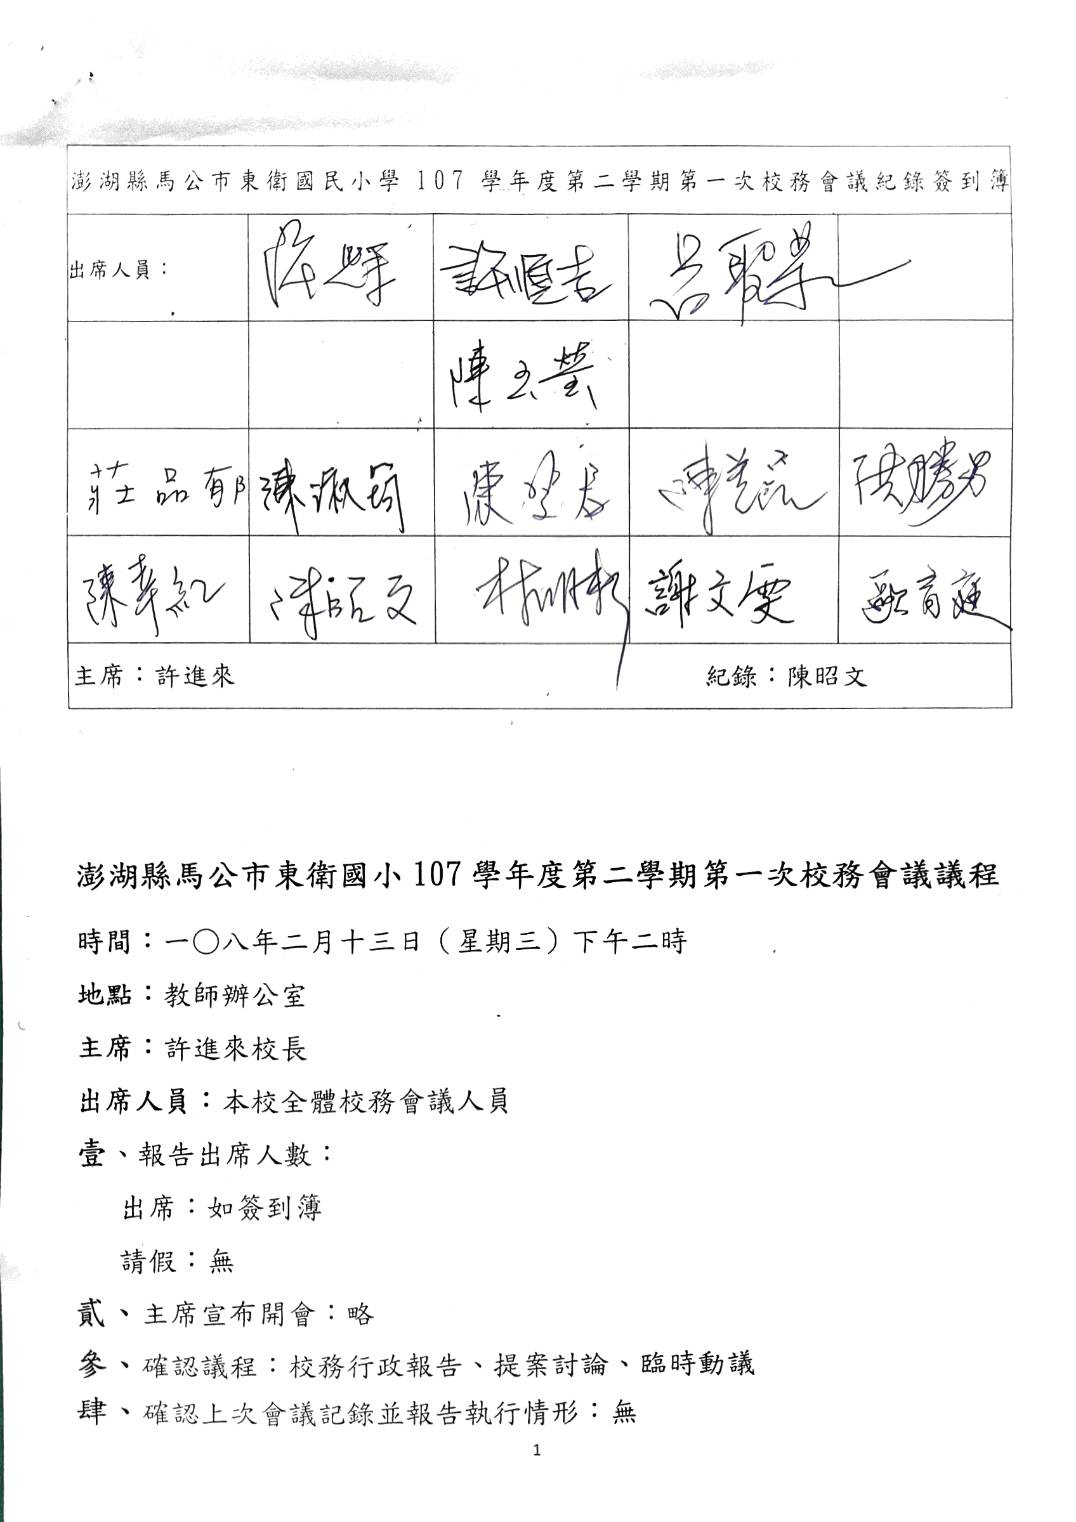 澎湖縣馬公市東衛國民小學 107 學年度第二學期第一次校務會議紀錄簽到簿
出席人員： 許恆吉 呂
陳玉瑩
莊品郁 陳淑筠 陳 陳 洪勝男
陳幸紅 陳昭文 林明彬 謝文雯 歐育庭
主席：許進來 紀錄：陳昭文
澎湖縣馬公市東衛國小 107 學年度第二學期第一次校務會議議程
時間：一〇八年二月十三日（星期三）下午二時
地點：教師辦公室
主席：許進來校長
出席人員：本校全體校務會議人員
壹、報告出席人數：
出席：如簽到簿
請假：無
貳、主席宣布開會：略
參、確認議程：校務行政報告、提案討論、臨時動議
肆、確認上次會議記錄並報告執行情形：無
1